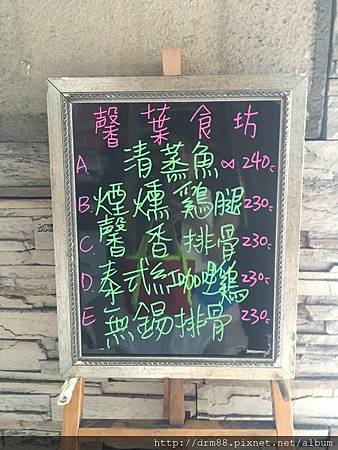 馨葉食坊
A 清蒸魚 ∞ 240.-
B. 煙燻鷄腿 230.-
C 馨香排骨 230.-
D. 泰式紅咖哩鷄 230.-
E 無錫排骨 230.-
http://drm88.pixnet.net/album